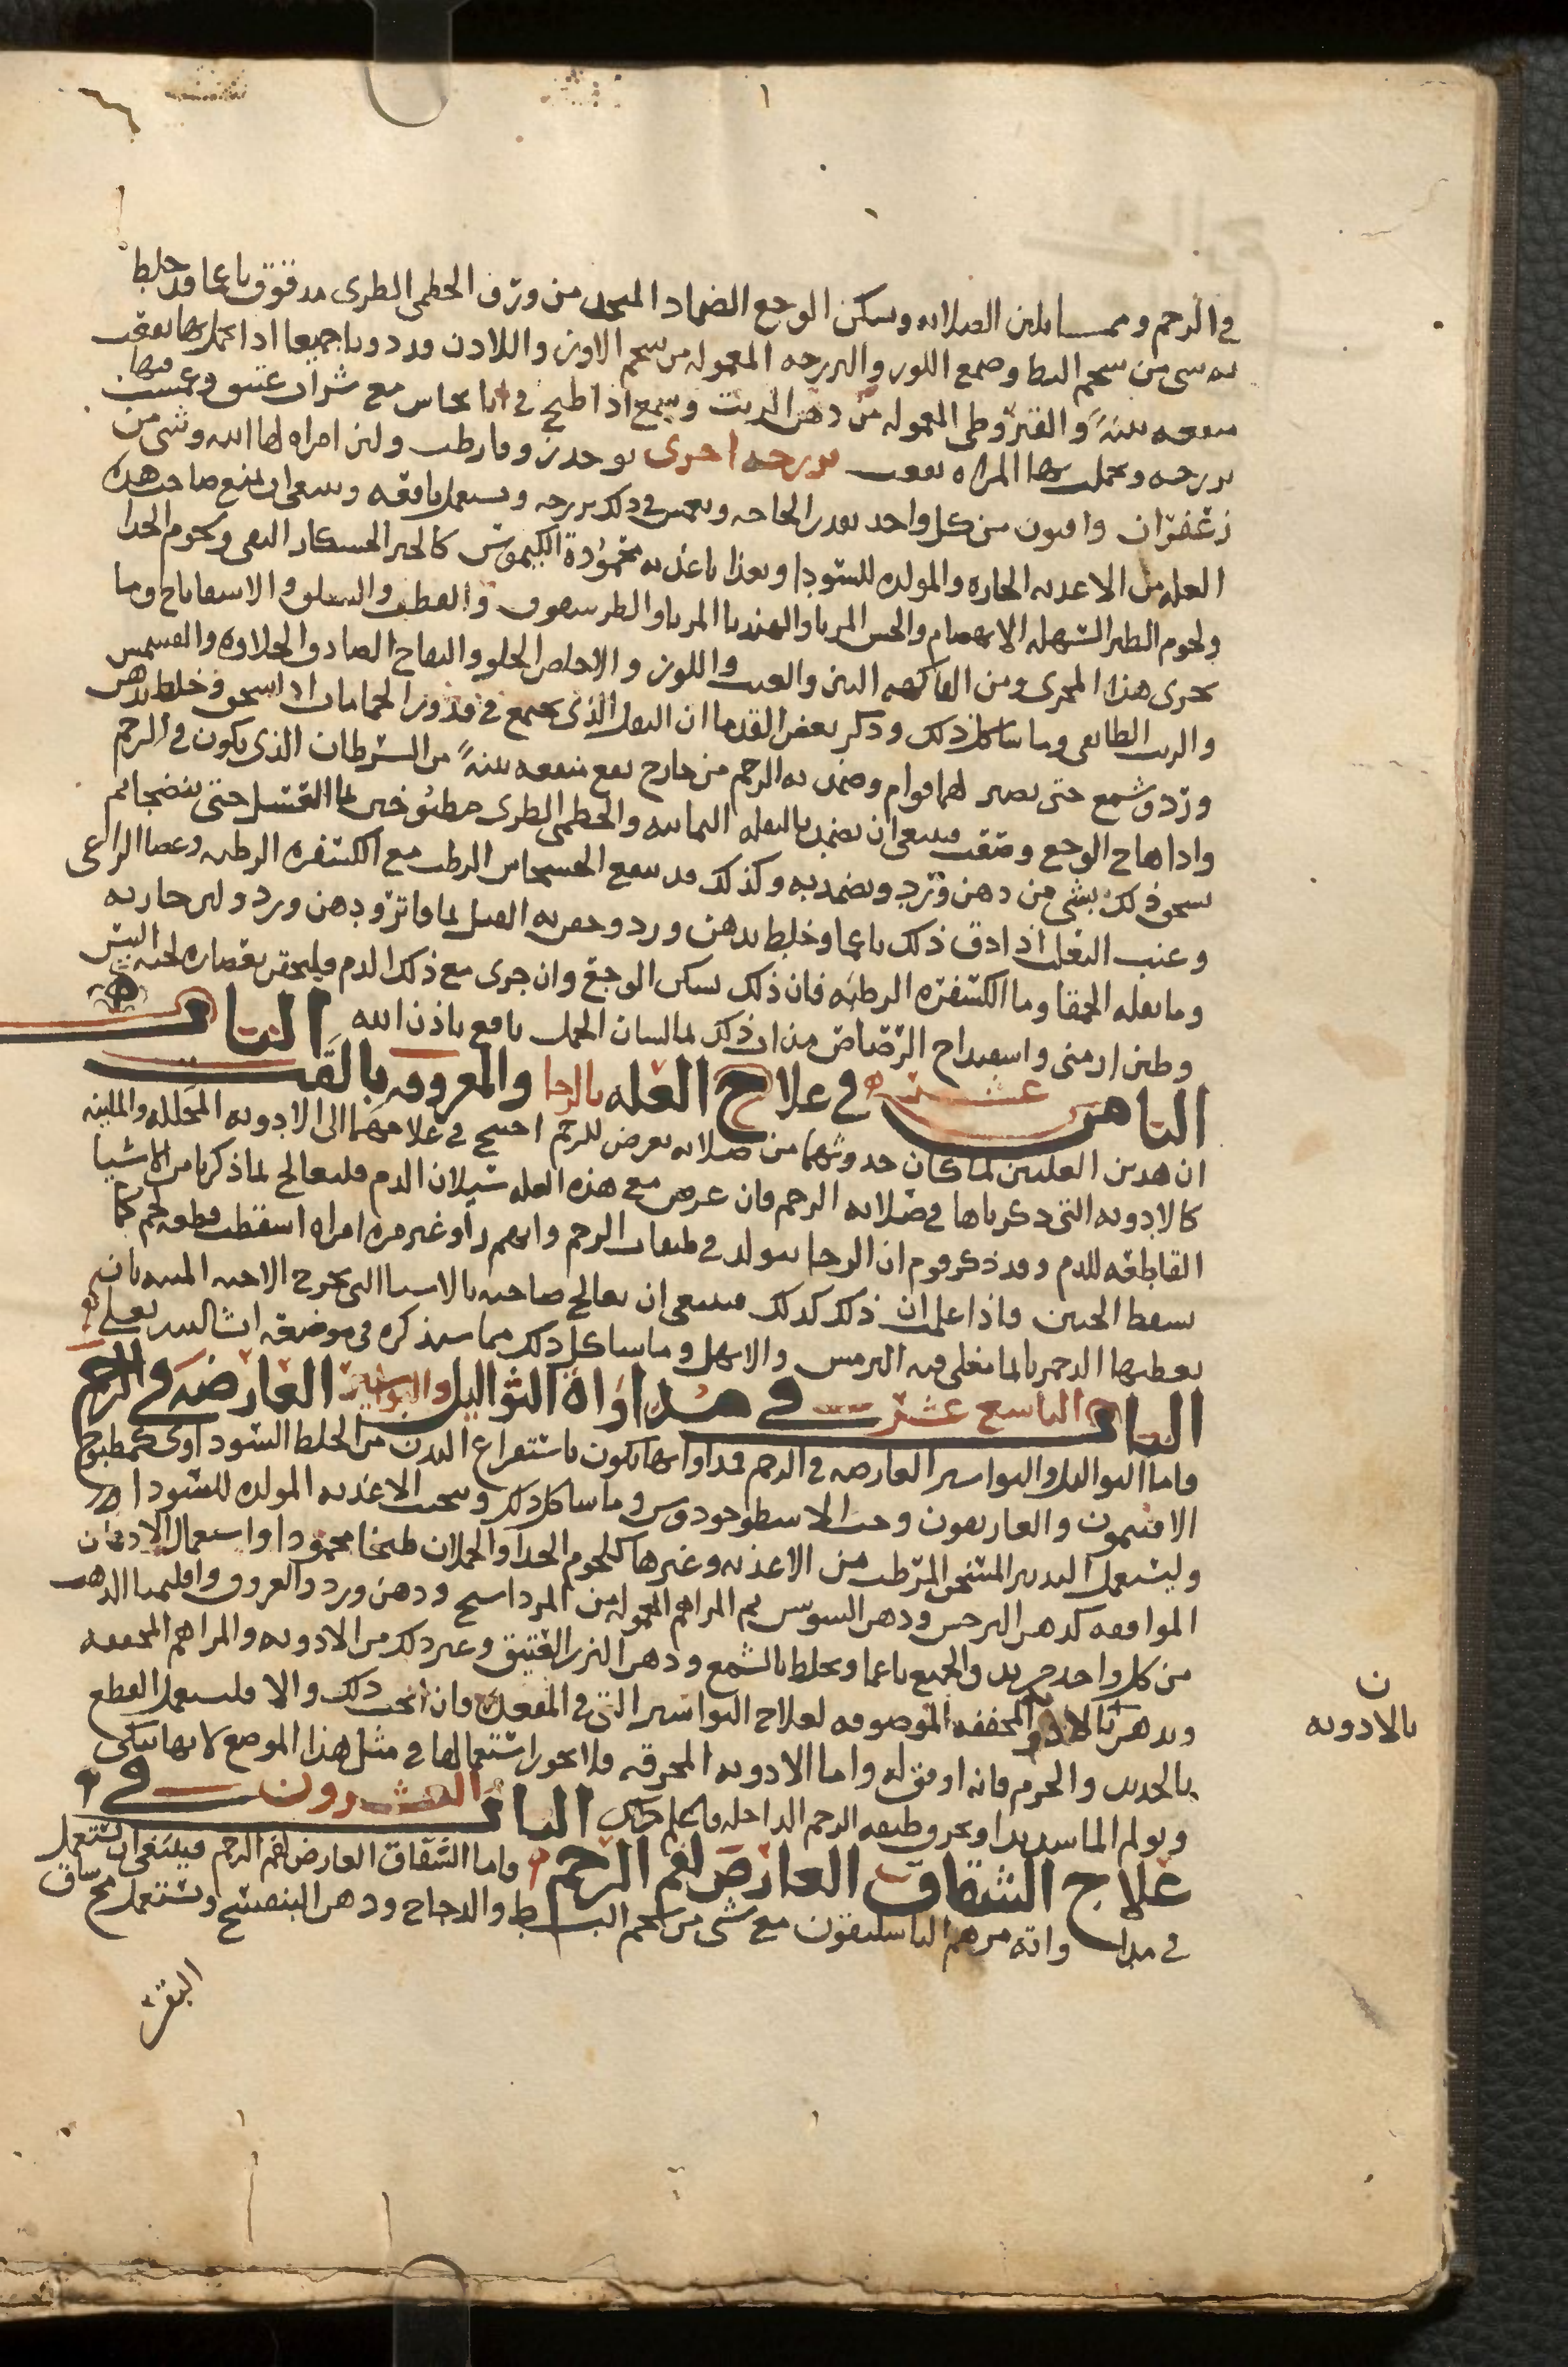 في الرحم ومما يلين الصلابه ويسكن الوجع الضماد المتخذ من ورق الخطمي الطري مدقوق ناعما قد خلط
به شي من شحم البط وصمغ اللوز والفرزجه المعموله من شحم الاوز واللادن ودهن ورد وبا جميعا اذا تحمل بها نفعت
منفعه بينةً والقيروطي المعموله من دهن الزيت وشمع اذا طبخ في انا نحاس مع شراب عتيق وغمست فيها
فرزجه وتحملت بها المراه نفعت فرزجه اخرى يوخذ زوفا رطب ولبن امراه لها ابنه وشي من
زعفران وافيون من كل واحد بقدر الحاجه ويغمس في ذلك فرزجه ويستعمل نافعه وينبغي ان يمنع صاحب هذه
العله من الاغذيه الحاره والمولده للسودا ويغذا باغذيه محموده الكيموس كالخبز الخشكار النقي ولحوم الجدا
ولحوم الطير السهله الانهضام والخس المربا والهندبا المربا والطرشقوق والقطف والسلق والاسفاناخ وما
يجري هذا المجرى ومن الفاكهه التين والعنب واللوز والاجاص الحلو والتفاح الصادق الحلاوه والمشمش
والزبيب الطائفي وما شاكل ذلك وذكر بعض القدما ان الثفل الذي يجتمع في قدور الحمامات اذا سحق وخلط بدهن
ورد وشمع حتى يصير لهما قوام وضمد به الرحم من خارج نفع منفعه بينةً من السرطان الذي يكون في الرحم
واذا هاج الوجع وصعب فينبغي ان يضمد بالبقله اليمانيه والخطمي الطري مطبوخين بما العسل حتى ينضجا ثم
يسحق ذلك بشي من دهن ورد ويضمد به وكذلك قد ينفع الخشخاش الرطب مع الكسفره الرطبه وعصا الراعي
وعنب الثعلب اذا دق ذلك ناعما وخلط بدهن ورد وحقن به القبل بما فاتر ودهن ورد ولبن جاريه
وما بقله الحمقا وما الكسفره الرطبه فان ذلك يسكن الوجع وان جرى مع ذلك الدم فليحقن بعصاره لحيه التيس
وطين ارمني واسفيداج الرصاص مداف ذلك بما لسان الحمل نافع باذن الله الباب
الثامن عشر في علاج العله بالرحا والمعروفه بالقب
ان هذين العلتين لما كان حدوثهما من صلابه تعرض للرحم احتيج في علاجهما الى الادويه المحلله والملينه
كالادويه التي ذكرناها في صلابه الرحم فان عرض مع هذه العله سيلان الدم فليعالج بما ذكرنا من الاشيا
القاطعه للدم وقد ذكر قوم ان الرحا يتولد في طبقات الرحم وانهم راوا غير مره امراه اسقطت قطعه لحم كما
يسقط الجنين فاذا علمت ان ذلك كذلك فينبغي ان يعالج صاحبه بالاشيا التي تخرج الاجنه الميته بان
يعطيها الدحمرتا بما مغلي فيه الترمس والابهل وما شاكل ذلك مما سنذكره في موضعه ان شا الله تعلى
الباب التاسع عشر في مداواة الثواليل والبواسير العارضه في الرحم
واما الثواليل والبواسير العارضه في الرحم فمداواتها يكون باستفراغ البدن من الخلط السوداوي كمطبوخ
الافتيمون والغاريقون وحب الاسطوخودوس وما شاكل ذلك وتجنب الاغذيه المولده للسودا
وليستعمل التدبير المسخن المرطب من الاغذيه وغيرها كلحوم الجدا والحملان طبخا محمودا واستعمال الادهان
الموافقه كدهن النرجس ودهن السوسن ثم المراهم المعموله من المرداسنج ودهن ورد والعروق واقليميا الذهب
من كل واحد جز يدق الجميع ناعما ويخلط بالشمع ودهن البزر العتيق وغير ذلك من الادويه والمراهم المجففه
ويدهن بالادويه المجففه الموصوفه لعلاج البواسير التي في المقعده فان انجب ذلك والا فليستعمل القطع
بالحديد والخرم فانه اوفق له واما الادويه المحرقه فلا يجوز استعمالها في مثل هذا الموضع لانها تنكي
وتولم الما شديدا وتحرق طبقه الرحم الداخله فاعلم ذلك الباب العشرون في
علاج الشقاق العارض لفم الرحم واما الشقاق العارض لفم الرحم فينبغي ان يستعمل
في مداواته مرهم الباسليقون مع شي من شحم البط والدجاج ودهن البنفسج ويستعمل مخ ساق
البقر
ن
بالادويه